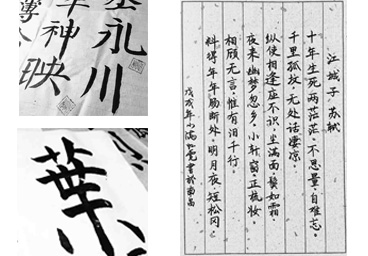 永川
神映
葉
江城子 苏轼
十年生死两茫茫，不思量，自难忘。
千里孤坟，无处话凄凉。
纵使相逢应不识，尘满面，鬓如霜。
夜来幽梦忽乡，小轩窗，正梳妆。
相顾无言，惟有泪千行。
料得年年肠断处，明月夜，短松冈。
戊戌年小满书於南昌